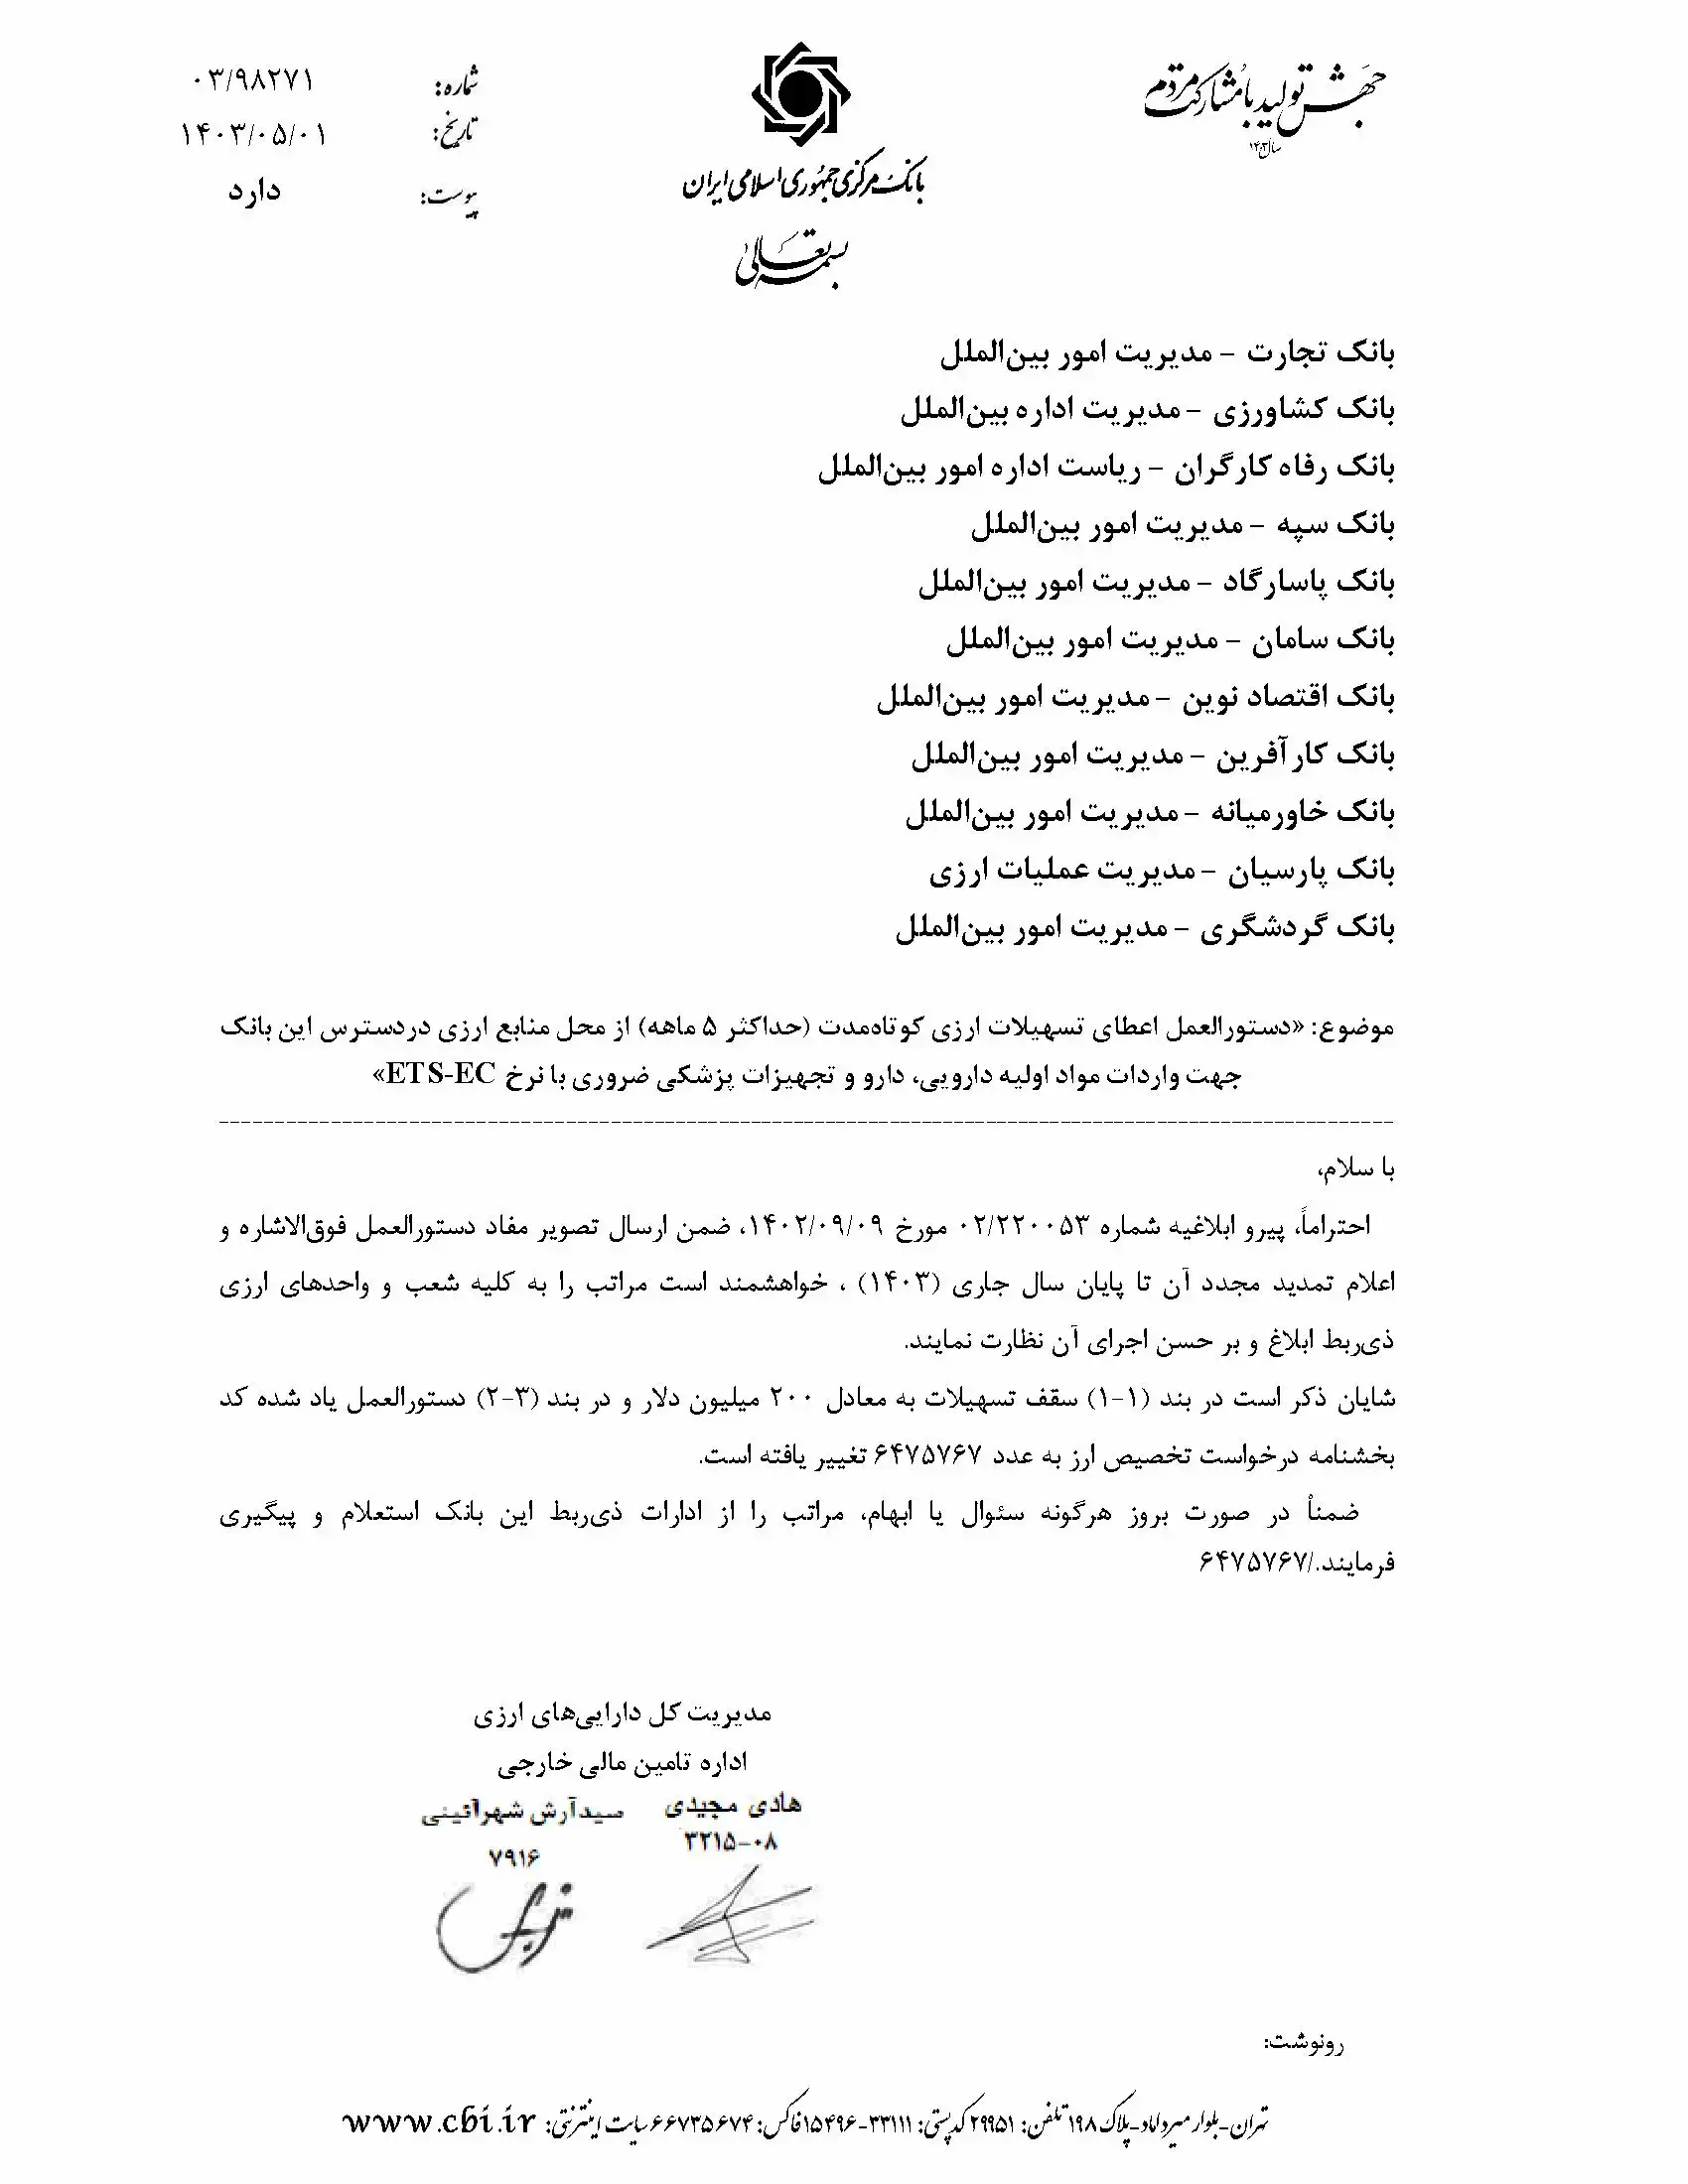 جهش تولید با مشارکت مردم
سال ۱۴۰۳
بانک مرکزی جمهوری اسلامی ایران
بسمه تعالی
شماره: ۰۳/۹۸۲۷۱
تاریخ: ۱۴۰۳/۰۵/۰۱
پیوست: دارد
بانک تجارت – مدیریت امور بین‌الملل
بانک کشاورزی – مدیریت اداره بین‌الملل
بانک رفاه کارگران – ریاست اداره امور بین‌الملل
بانک سپه – مدیریت امور بین‌الملل
بانک پاسارگاد – مدیریت امور بین‌الملل
بانک سامان – مدیریت امور بین‌الملل
بانک اقتصاد نوین – مدیریت امور بین‌الملل
بانک کارآفرین – مدیریت امور بین‌الملل
بانک خاورمیانه – مدیریت امور بین‌الملل
بانک پارسیان – مدیریت عملیات ارزی
بانک گردشگری – مدیریت امور بین‌الملل
موضوع: «دستورالعمل اعطای تسهیلات ارزی کوتاه‌مدت (حداکثر ۵ ماهه) از محل منابع ارزی دردسترس این بانک
جهت واردات مواد اولیه دارویی، دارو و تجهیزات پزشکی ضروری با نرخ ETS-EC»
با سلام،
احتراماً، پیرو ابلاغیه شماره ۰۲/۲۲۰۰۵۳ مورخ ۱۴۰۲/۰۹/۰۹، ضمن ارسال تصویر مفاد دستورالعمل فوق‌الاشاره و
اعلام تمدید مجدد آن تا پایان سال جاری (۱۴۰۳) ، خواهشمند است مراتب را به کلیه شعب و واحدهای ارزی
ذی‌ربط ابلاغ و بر حسن اجرای آن نظارت نمایند.
شایان ذکر است در بند (۱-۱) سقف تسهیلات به معادل ۲۰۰ میلیون دلار و در بند (۳-۲) دستورالعمل یاد شده کد
بخشنامه درخواست تخصیص ارز به عدد ۶۴۷۵۷۶۷ تغییر یافته است.
ضمناً در صورت بروز هرگونه سئوال یا ابهام، مراتب را از ادارات ذی‌ربط این بانک استعلام و پیگیری
فرمایند./۶۴۷۵۷۶۷
مدیریت کل دارایی‌های ارزی
اداره تامین مالی خارجی
هادی مجیدی سیدآرش شهرآئینی
۳۲۱۵-۰۸ ۷۹۱۶
رونوشت:
تهران-بلوار میرداماد-پلاک ۱۹۸ تلفن: ۲۹۹۵۱ کدپستی: ۳۳۱۱۱-۱۵۴۹۶ فاکس: ۶۶۷۳۵۶۷۴ سایت اینترنتی: www.cbi.ir